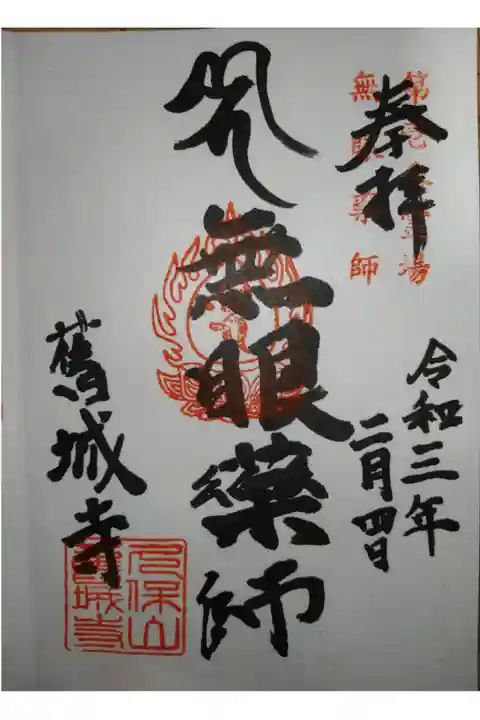 奉拝
無眼薬師
令和三年
二月四日
無眼藥師
舊城寺
久保山
舊城寺